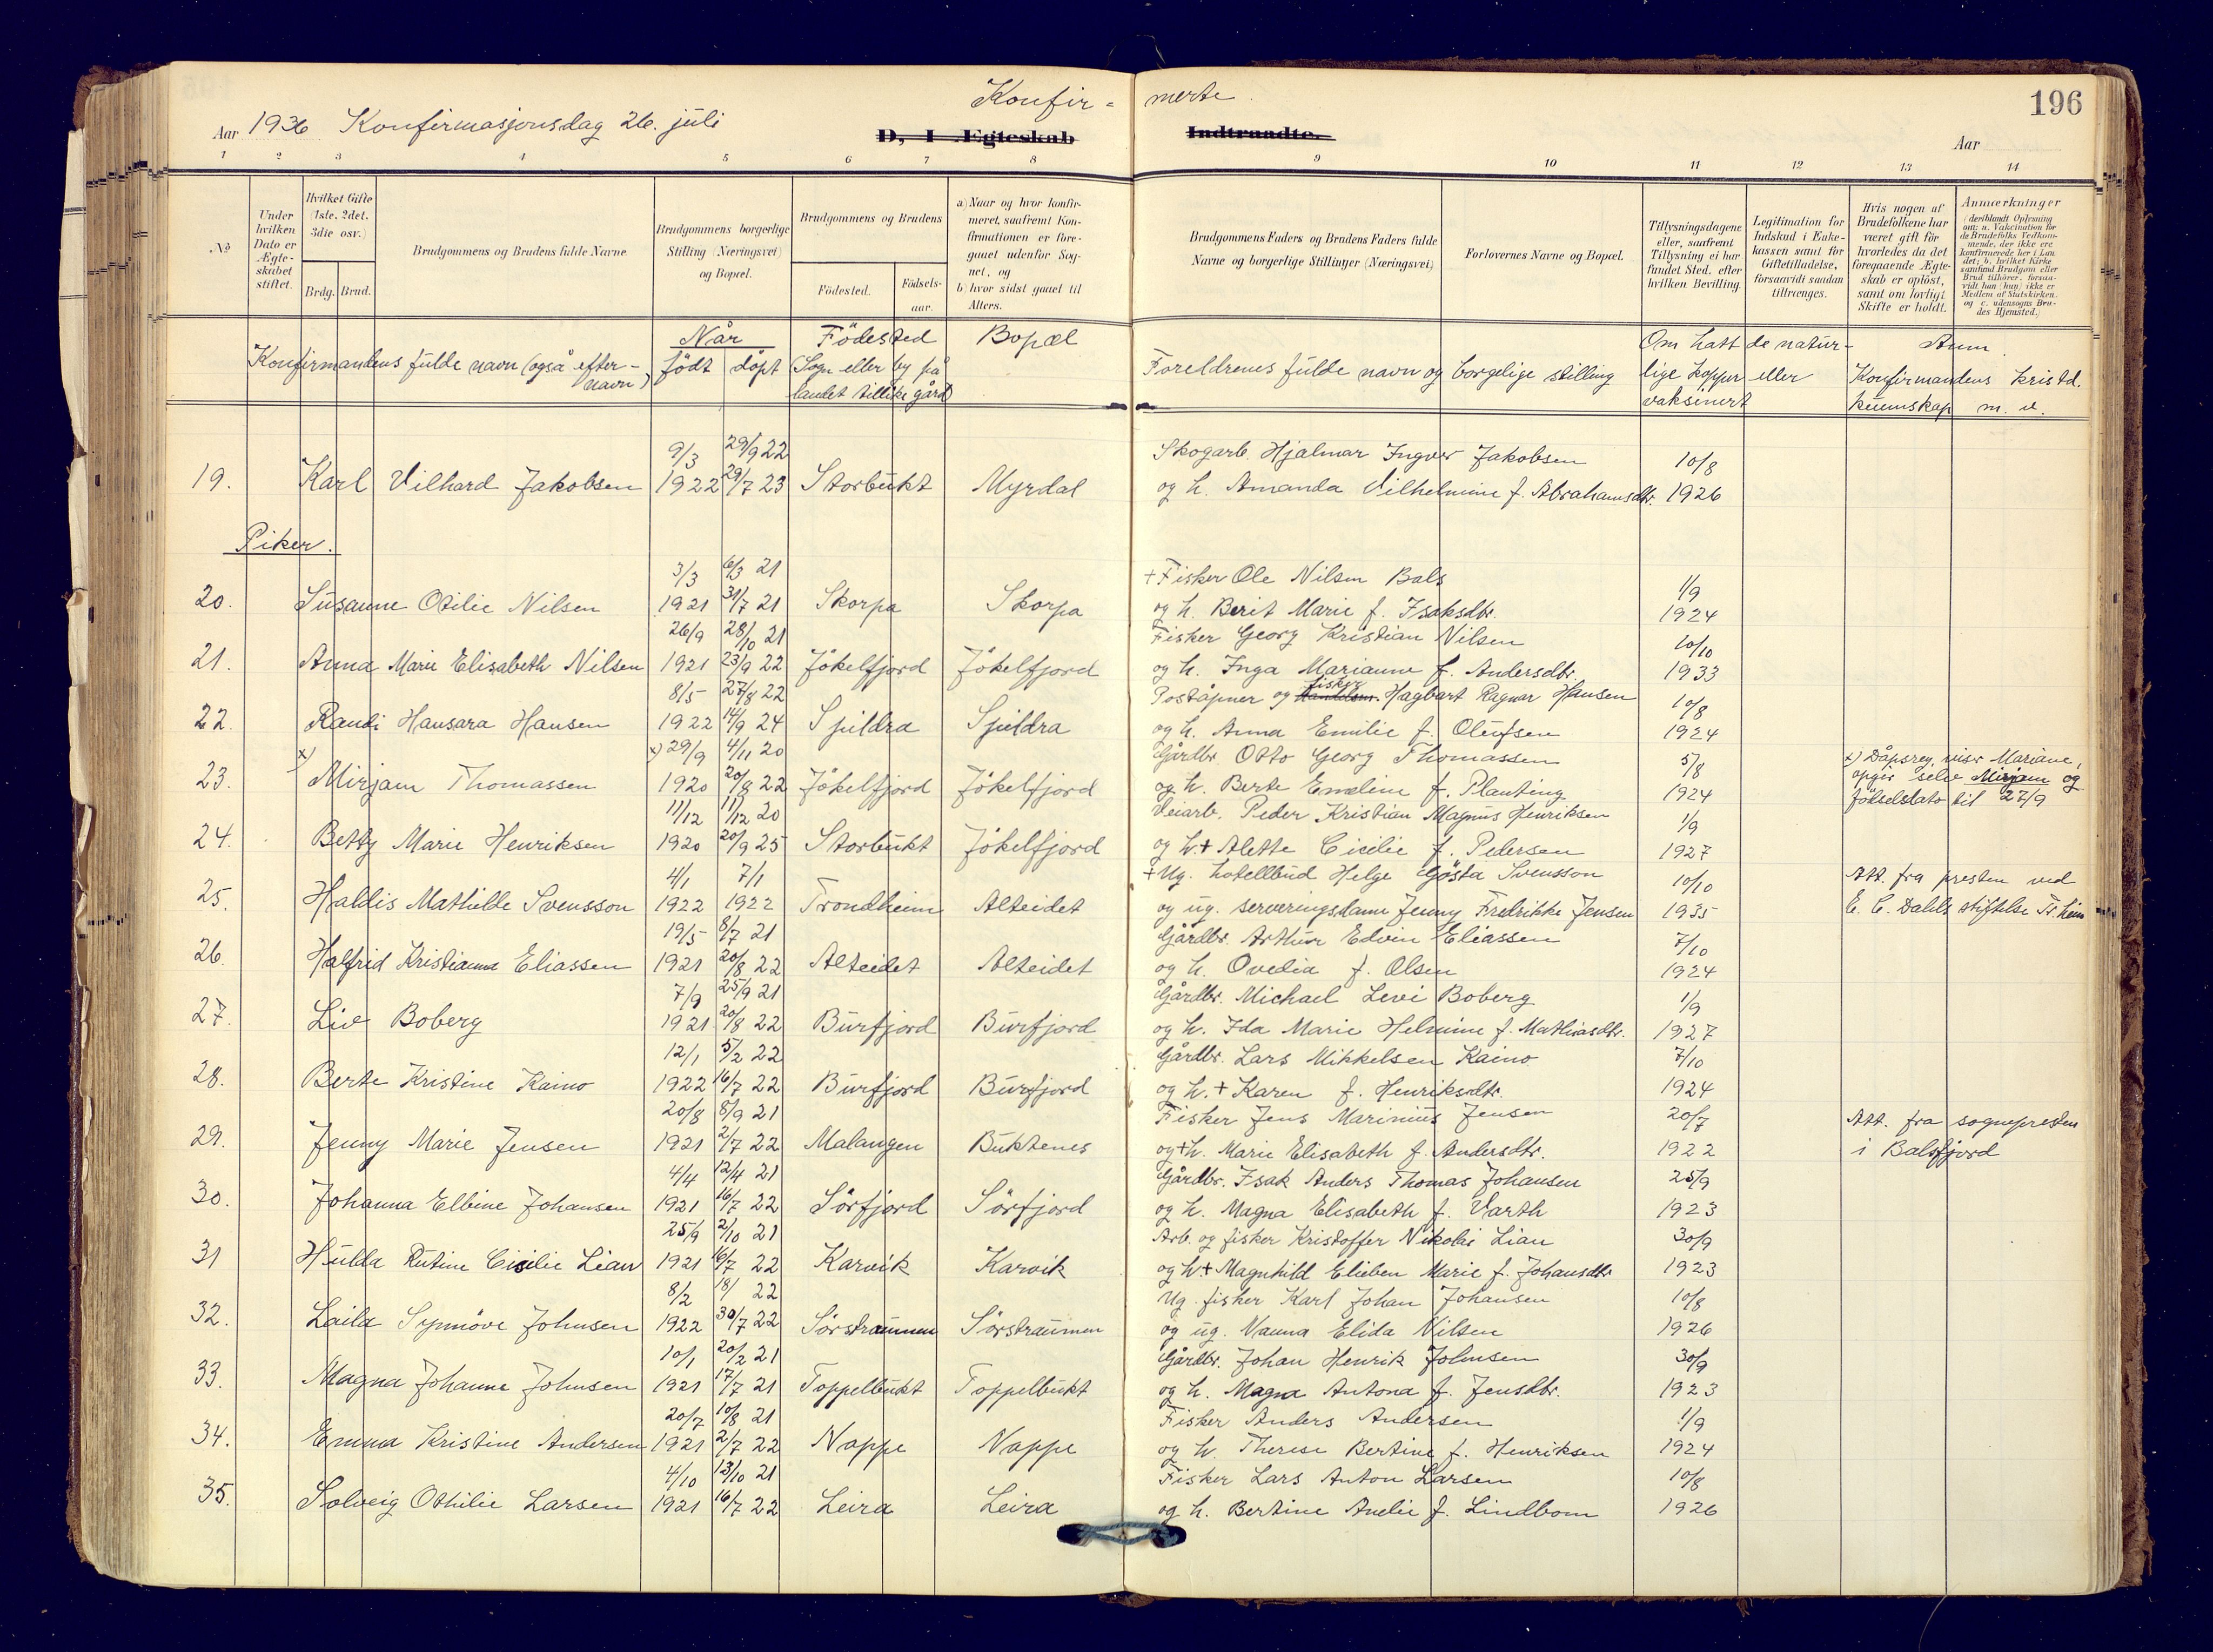 Konfir = merte.
196
Aar 1936 Konfirmasjonsdag 26. juli
D, I Ægteskab Indtraadte.
Aar
1 2 3 4 5 6 7 8 9 10 11 12 13 14
No
Under hvilken Dato er Ægte-skabet stiftet.
Hvilket Gifte (1ste, 2det, 3die osv.)
Brdg. Brud.
Brudgommens og Brudens fulde Navne
Brudgommens borgerlige Stilling (Næringsvei) og Bopæl.
Brudgommens og Brudens
Fødested.
Fødsels-aar.
a) Naar og hvor konfir-meret, saafremt Kon-firmationen er fore-gaaet udenfor Sog-net, og
b) hvor sidst gaaet til Alters.
Brudgommens Faders og Brudens Faders fulde Navne og borgerlige Stillinger (Næringsvei)
Forlovernes Navne og Bopæl.
Tillysningsdagene eller, saafremt Tillysning ei har fundet Sted, efter hvilken Bevilling.
Legitimation for Indskud i Enke-kassen samt for Giftetilladelse, forsaavidt saadan tiltrænges.
Hvis nogen af Brudefolkene har været gift før hvorledes da det foregaaende Ægte-skab er opløst, samt om lovligt Skifte er holdt.
Anmærkninger (deriblandt Oplysning om: a. Vakcination for de Brudefolks Vedkom-mende, der ikke ere konfirmerede her i Lan-det; b. hvilket Kirke-samfund Brudgom eller Brud tilhører, forsaa-vidt han (hun) ikke er Medlem af Statskirken, og c. udensogns Bru-des Hjemsted.)
Konfirmandens fulde navn (også efter-navn)
Når
födt döpt
Födested
(Sogn eller by på landet tillike gård)
Bopæl
Foreldrenes fulde navn og borgelige stilling
Om hatt de natur-lige kopper eller vaksinert
Anm.
Konfirmandens kristd. kunnskap m. v.
9/3 29/9 22 Skogarb. Hjalmar Ingver Jakobsen 10/8
19. Karl Vilhard Jakobsen 1922 29/7 23 Storbukt Myrdal og h. Amanda Vilhelmine f. Abrahamsdtr. 1926
Piker.
3/3 6/3 21 + Fisker Ole Nilsen Bals 1/9
20. Susanne Otilie Nilsen 1921 31/7 21 Skorpa Skorpa og h. Berit Marie f. Isaksdtr. 1924
26/9 28/10 21 Fisker Georg Kristian Nilsen 10/10
21. Anna Marie Elisabeth Nilsen 1921 23/9 22 Jökelfjord Jökelfjord og h. Inga Marianne f. Andersdtr. 1933
8/5 27/8 22 Poståpner og Handelsm. fisker Hagbart Ragnar Hansen 10/8
22. Randi Hansara Hansen 1922 14/9 24 Spildra Spildra og h. Anna Emilie f. Olufsen 1924
x) 29/9 4/11 20 Gårdbr. Otto Georg Thomassen 5/8 x) Dåpsreg. viser Mariane,
23. x) Mirjam Thomassen 1920 20/8 22 Jökelfjord Jökelfjord og h. Berte Emeline f. Planting 1924 opgir selv Mirjam og födselsdato til 27/9
11/12 11/12 20 Veiarb. Peder Kristian Magnus Henriksen 1/9
24. Betty Marie Henriksen 1920 20/9 25 Storbukt Jökelfjord og h. + Alette Cicilie f. Pedersen 1927
4/1 7/1 + Ug. hotellbud Helge Gösta Svensson 10/10 Att. fra presten ved
25. Haldis Mathilde Svensson 1922 1922 Trondheim Alteidet og ug. serveringsdame Jenny Fredrikke Jensen 1935 E. C. Dahls stiftelse Tr.heim
19/5 8/7 21 Gårdbr. Arthur Edvin Eliassen 7/10
26. Halfrid Kristianna Eliassen 1921 20/8 22 Alteidet Alteidet og h. Ovedia f. Olsen 1924
7/9 25/9 21 Gårdbr. Michael Levi Boberg 1/9
27. Liv Boberg 1921 20/8 22 Burfjord Burfjord og h. Ida Marie Helmine f. Mathiasdtr. 1927
12/1 5/2 22 Gårdbr. Lars Mikkelsen Kaino 7/10
28. Berte Kristine Kaino 1922 16/7 22 Burfjord Burfjord og h. + Karen f. Henriksdtr. 1924
20/8 8/9 21 Fisker Jens Marinius Jensen 20/7 Att. fra sognepresten
29. Jenny Marie Jensen 1921 2/7 22 Malangen Buktenes og + h. Marie Elisabeth f. Andersdtr. 1922 i Balsfjord
4/4 12/4 21 Gårdbr. Isak Anders Thomas Johansen 25/9
30. Johanna Elbine Johansen 1921 16/7 22 Sörfjord Sörfjord og h. Magna Elisabeth f. Varth 1923
25/9 2/10 21 Arb. og fisker Kristoffer Nikolai Lian 30/9
31 Hulda Rutine Cicilie Lian 1921 16/7 22 Karvik Karvik og h. + Magnhild Elieben Marie f. Johansdtr 1923
8/2 18/ 22 Ug. fisker Karl Johan Johansen 10/8
32. Laila Synnöve Johnsen 1922 30/7 22 Sörstraumen Sörstraumen og ug. Nanna Elida Nilsen 1926
10/1 20/2 21 Gårdbr. Johan Henrik Johnsen 30/9
33. Magna Johanne Johnsen 1921 17/7 21 Toppelbukt Toppelbukt og h. Magna Antona f. Jensdtr. 1923
20/7 10/8 21 Fisker Anders Andersen 1/9
34. Emma Kristine Andersen 1921 2/7 22 Noppe Noppe og h. Therese Bertine f. Henriksen 1924
4/10 13/10 21 Fisker Lars Anton Larsen 10/8
35. Solveig Othilie Larsen 1921 16/7 22 Leira Leira og h. Bertine Anelie f. Lindbom 1926